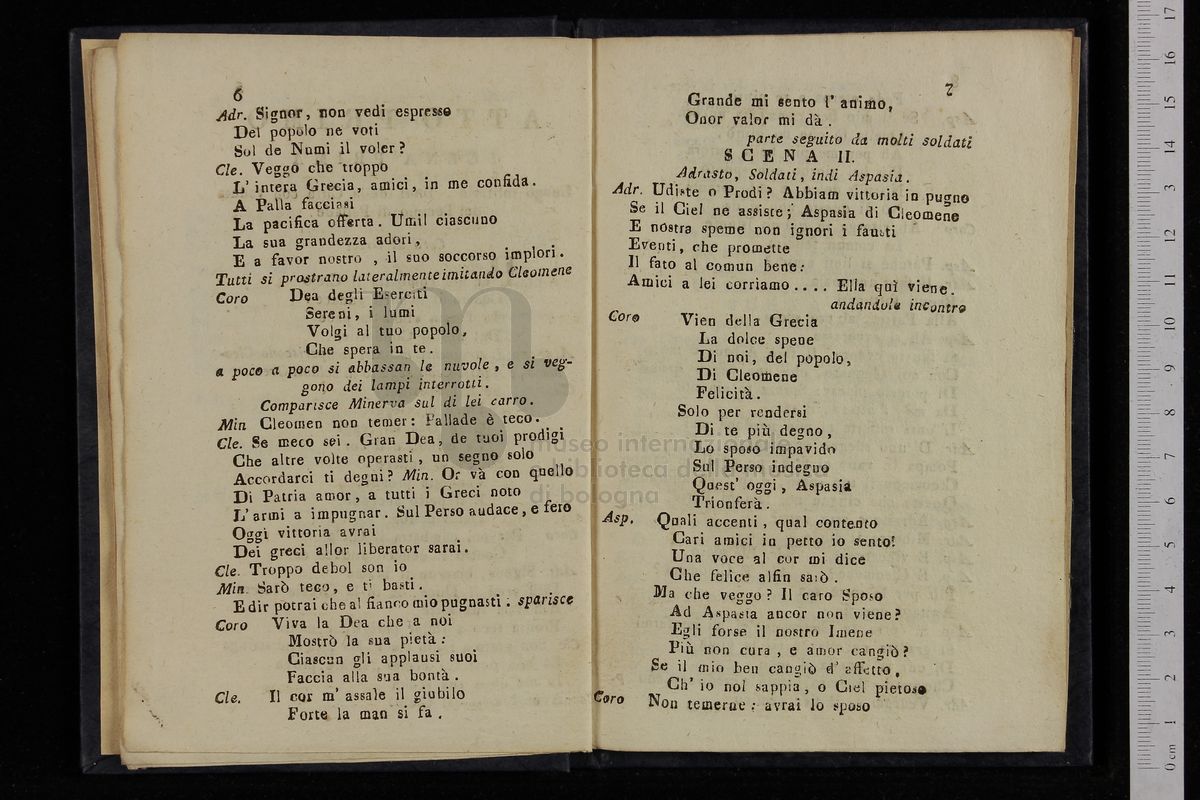 6
Adr. Signor, non vedi espresso
Del popolo ne voti
Sol de Numi il voler?
Cle. Veggo che troppo
L'intera Grecia, amici, in me confida.
A Palla facciasi
La pacifica offerta. Umil ciascuno
La sua grandezza adori,
E a favor nostro, il suo soccorso implori.
Tutti si prostrano lateralmente imitando Cleomene
Coro Dea degli Eserciti
Sereni, i lumi
Volgi al tuo popolo,
Che spera in te.
a poco a poco si abbassan le nuvole, e si veg-
gono dei lampi interrotti.
Comparisce Minerva sul di lei carro.
Min Cleomen non temer: Pallade è teco.
Cle. Se meco sei. Gran Dea, de tuoi prodigi
Che altre volte operasti, un segno solo
Accordarci ti degni? Min. Or và con quello
Di Patria amor, a tutti i Greci noto
L'armi a impugnar. Sul Perso audace, e fero
Oggi vittoria avrai
Dei greci allor liberator sarai.
Cle. Troppo debol son io
Min. Sarò teco, e ti basti.
E dir potrai che al fianco mio pugnasti. sparisce
Coro Viva la Dea che a noi
Mostrò la sua pietà:
Ciascun gli applausi suoi
Faccia alla sua bontà.
Cle. Il cor m'assale il giubilo
Forte la man si fa.
7
Grande mi sento l'animo,
Onor valor mi dà.
parte seguito da molti soldati
SCENA II.
Adrasto, Soldati, indi Aspasia.
Adr. Udiste o Prodi? Abbiam vittoria in pugno
Se il Ciel ne assiste; Aspasia di Cleomene
E nostra speme non ignori i fausti
Eventi, che promette
Il fato al comun bene:
Amici a lei corriamo.... Ella quì viene.
andandole incontro
Coro Vien della Grecia
La dolce speue
Di noi, del popolo,
Di Cleomene
Felicità.
Solo per rendersi
Di te più degno,
Lo sposo impavido
Sul Perso indegno
Quest'oggi, Aspasia
Trionferà.
Asp. Quali accenti, qual contento
Cari amici in petto io sento!
Una voce al cor mi dice
Che felice alfin sarò.
Ma che veggo? Il caro Sposo
Ad Aspasia ancor non viene?
Egli forse il nostro Imene
Più non cura, e amor cangiò?
Se il mio ben cangiò d'affetto,
Ch'io nol sappia, o Ciel pietoso
Coro Non temerne: avrai lo sposo
museo internazionale
e biblioteca della musica
di bologna
0 cm 1 2 3 4 5 6 7 8 9 10 11 12 13 14 15 16 17